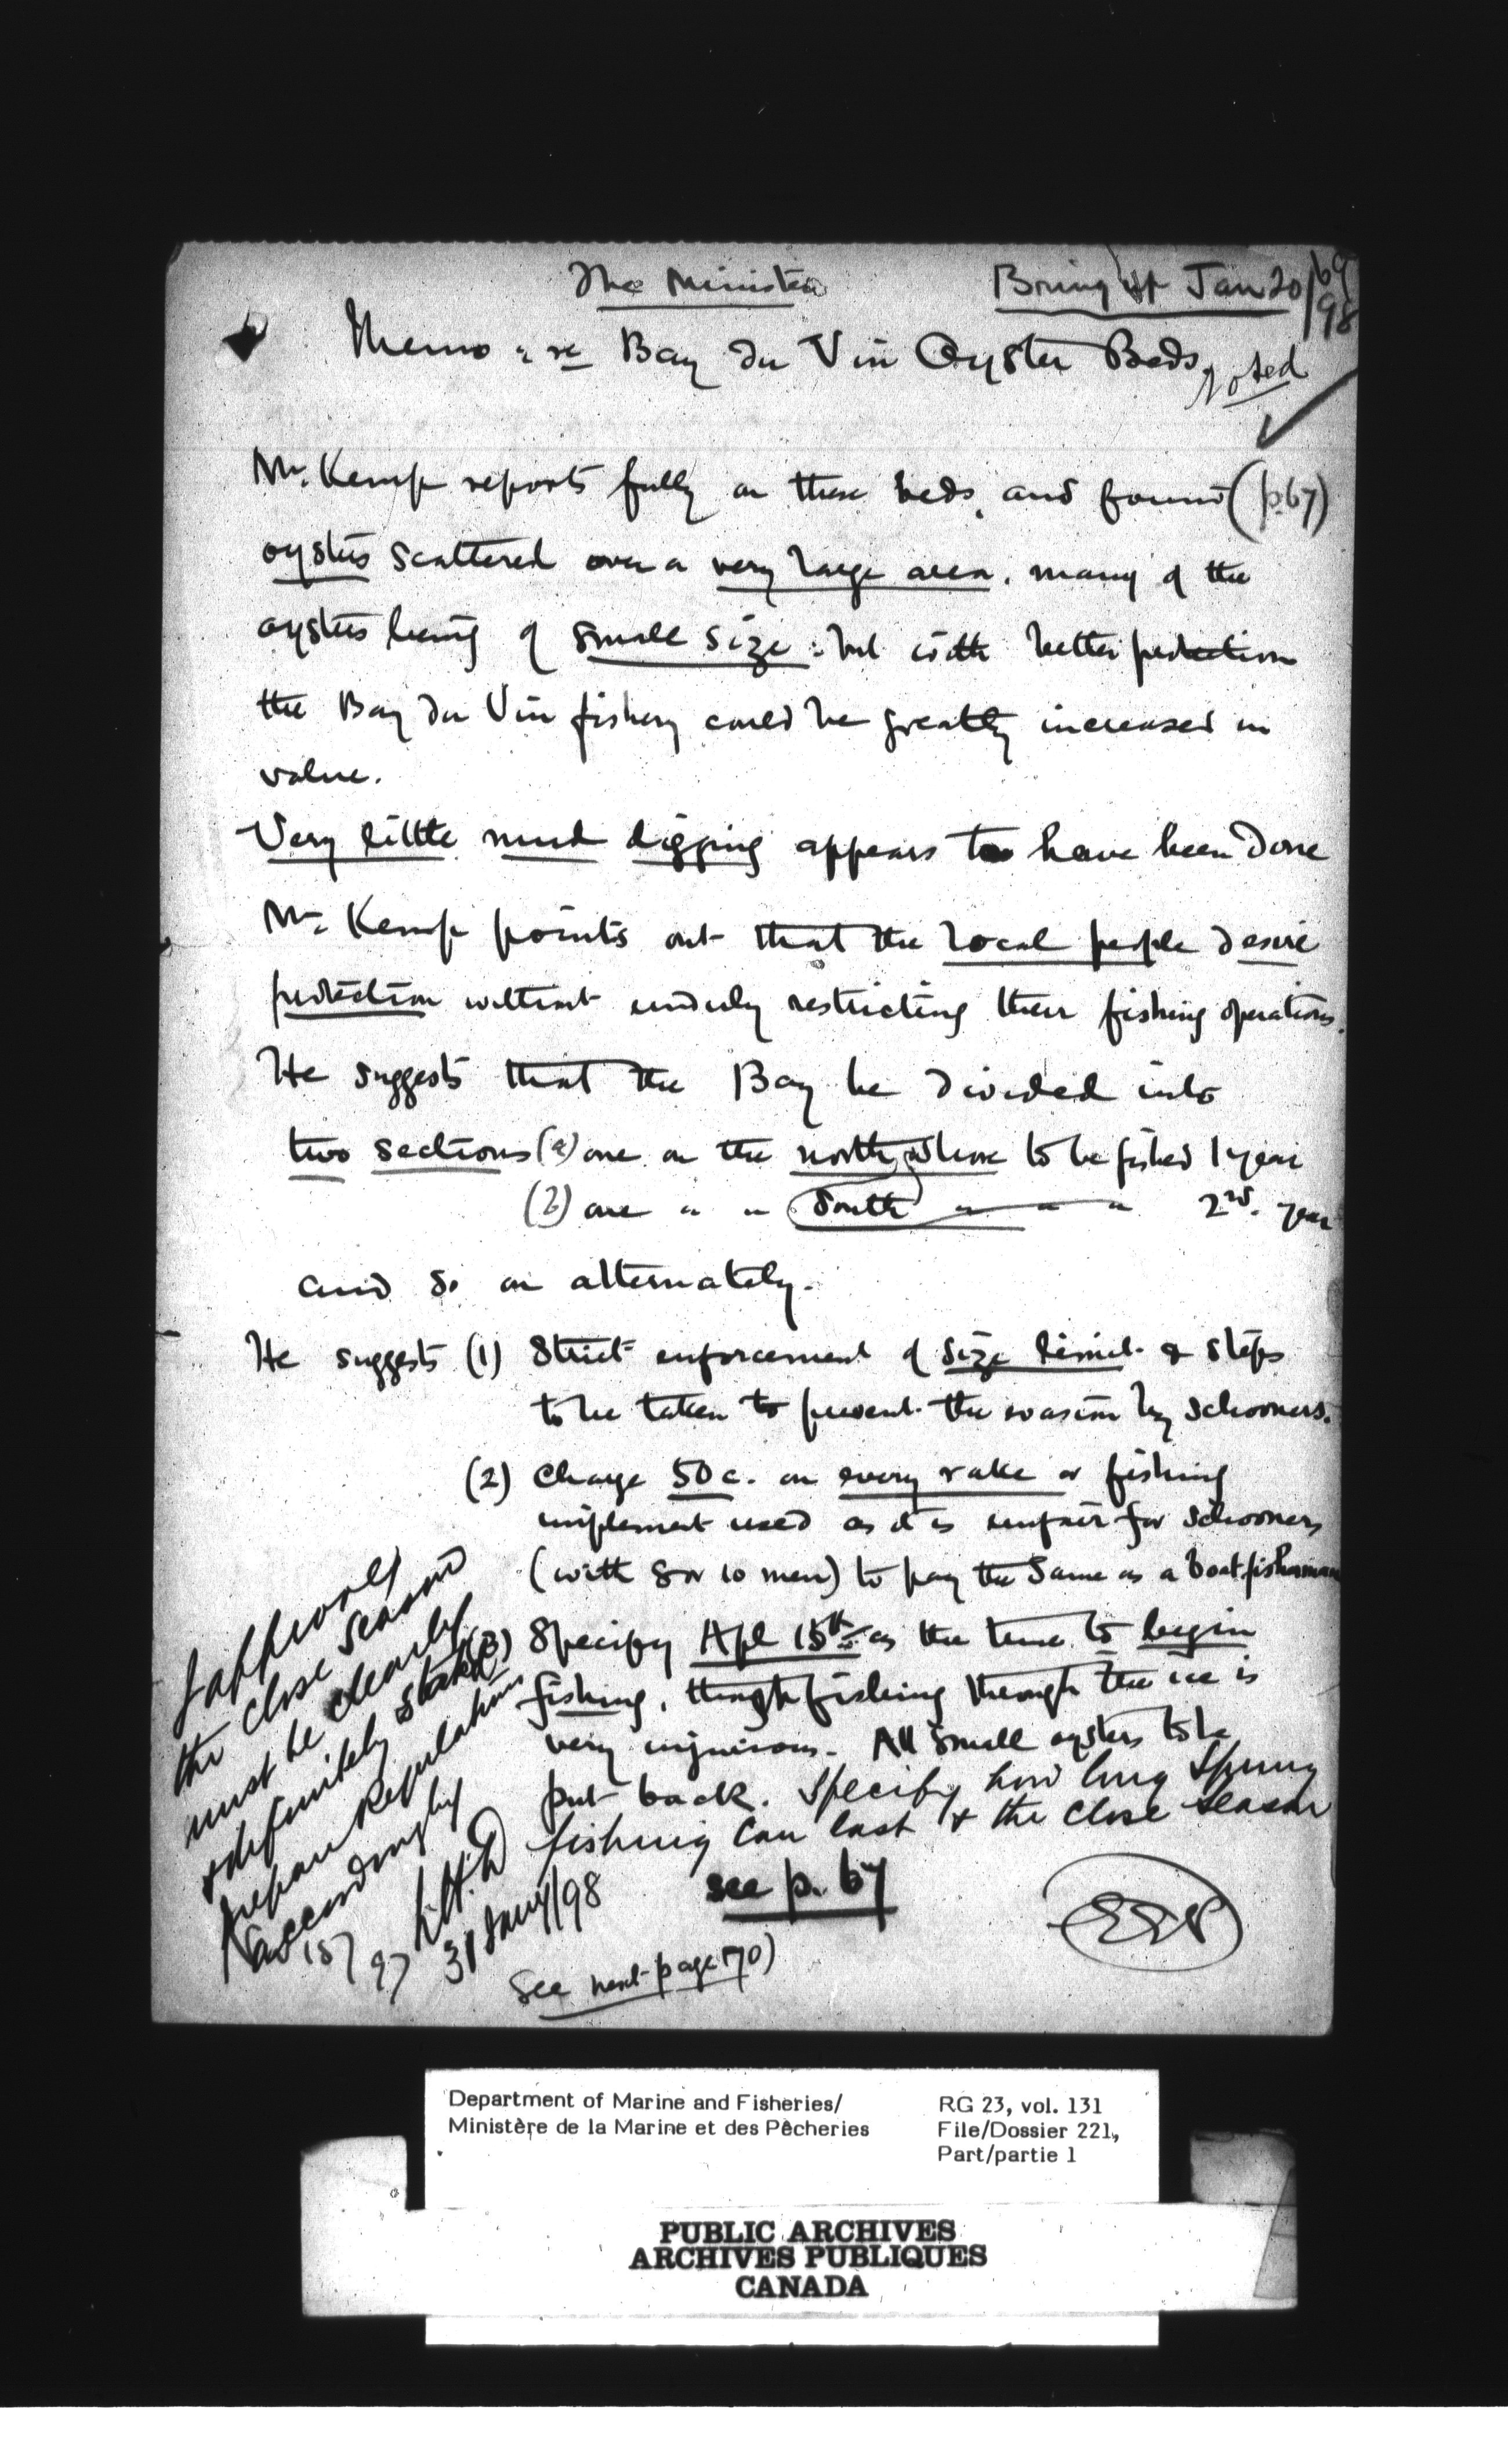 The Minister
Bring up Jan 20/98
69
Memo: re Bay du Vin Oyster Beds.
Noted
Mr. Kemp reports fully on these beds, and found (p.67)
oysters scattered over a very large area, many of the
oysters being of small size: but with better protection
the Bay du Vin fishery could be greatly increased in
value.
Very little mud digging appears to have been done
Mr. Kemp points out that the local people desire
protection without unduly restricting their fishing operations.
He suggests that the Bay be divided into
two sections (a) one on the north shore to be fished 1 year
(2) one " " South " " " 2nd. year
and so on alternately.
He suggests (1) Strict enforcement of size limit & steps
to be taken to prevent the evasion by schooners.
(2) Charge 50c. on every rake or fishing
implement used as it is unfair for schooners
(with 8 or 10 men) to pay the same as a boat fisherman
(3) Specify Apl 15th as the time to begin
fishing, though fishing through the ice is
very injurious. All small oysters to be
put back. Specify how long Spring
fishing can last & the close season
see p. 67
See next page 70)
EEP
I approve
the close season
must be clearly
& definitely stated
prepare Regulations
accordingly
L.H.D
31 Jany/98
Nov 18/97
Department of Marine and Fisheries/
Ministère de la Marine et des Pêcheries
RG 23, vol. 131
File/Dossier 221,
Part/partie 1
PUBLIC ARCHIVES
ARCHIVES PUBLIQUES
CANADA